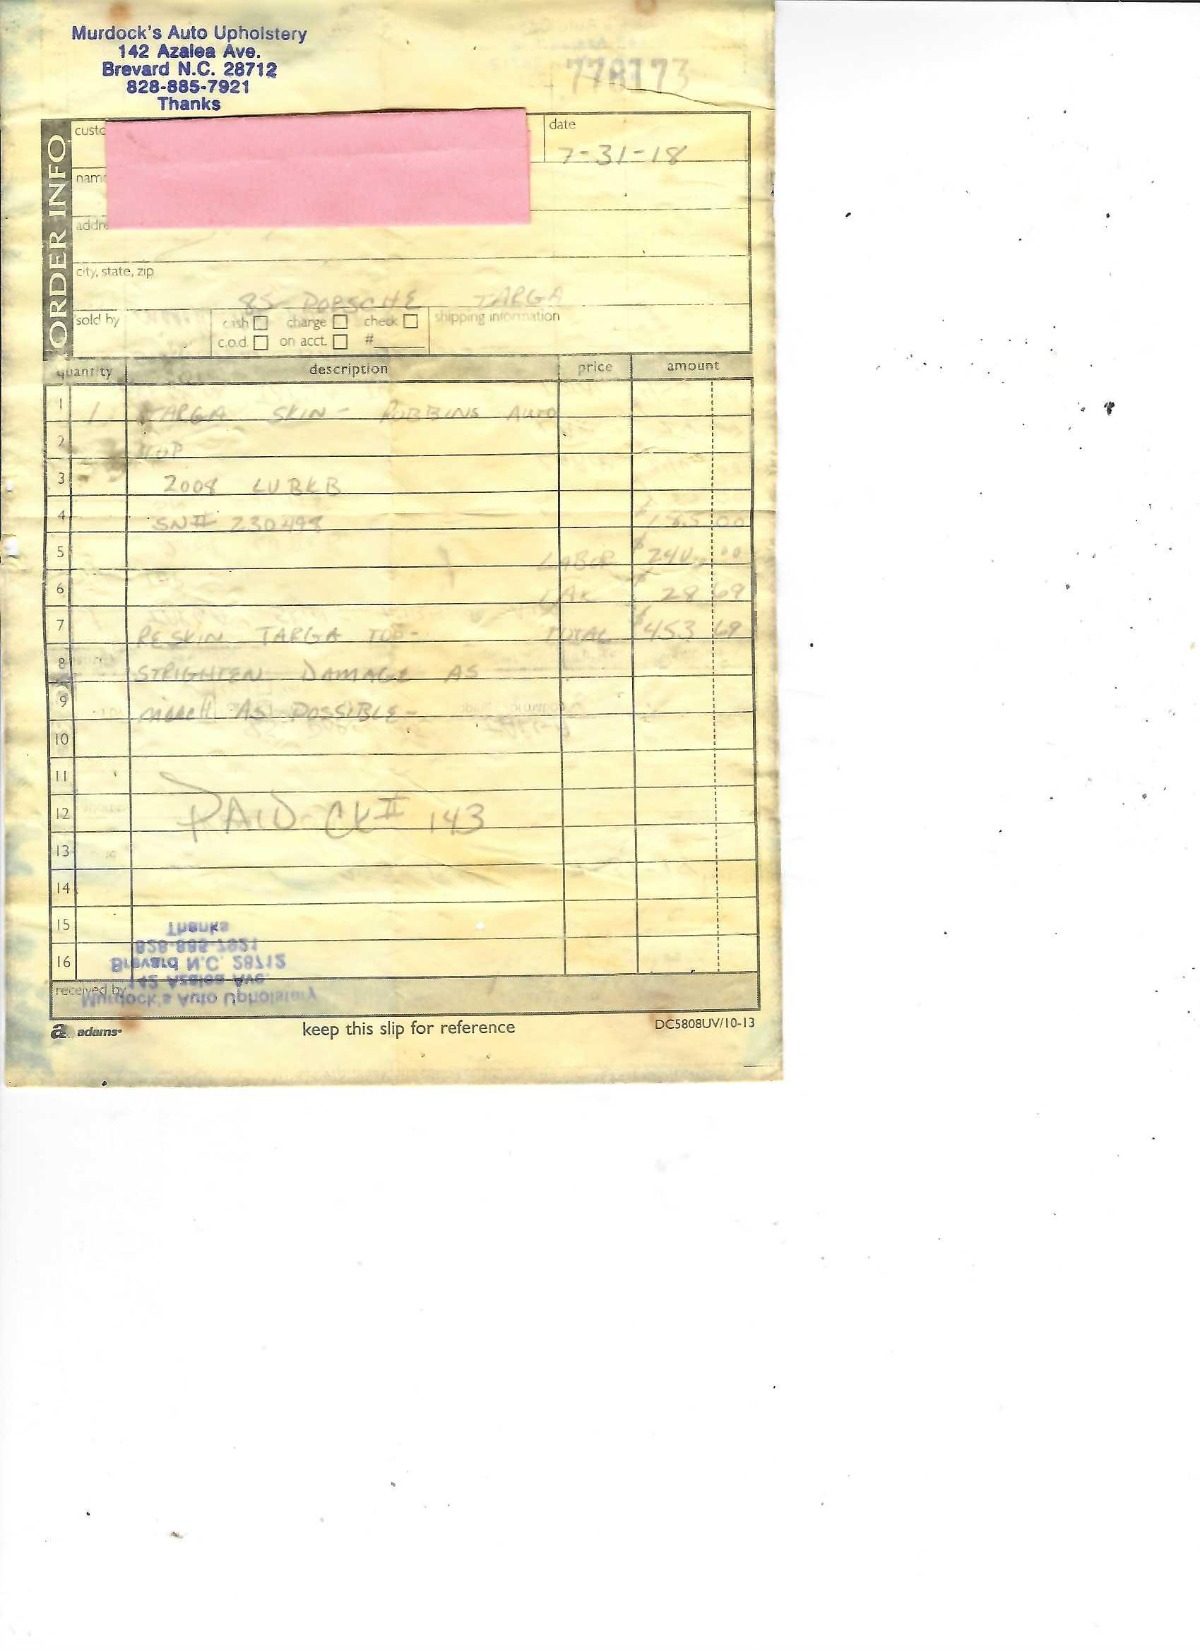 Murdock's Auto Upholstery
142 Azalea Ave.
Brevard N.C. 28712
828-885-7921
Thanks
778173
ORDER INFO
custo
date
7-31-18
name
addre
city, state, zip
85 PORSCHE TARGA
sold by
cash charge check shipping information
c.o.d. on acct. #
quantity description price amount
1 1 TARGA SKIN - ROBBINS AUTO
2 TOP
3 2008 LUBKB
4 SN# 230498 $185 00
5 LABOR $240.00
6 TAX $28 69
7 RESKIN TARGA TOP- TOTAL $453 69
8 STRIGHTEN DAMAGE AS
9 AS POSSIBLE-
10
11
12 PAID CK# 143
13
14
15 Thanks
828-885-7921
16 Brevard N.C. 28712
142 Azalea Ave.
received by Murdock's Auto Upholstery
a adams® keep this slip for reference DC5808UV/10-13